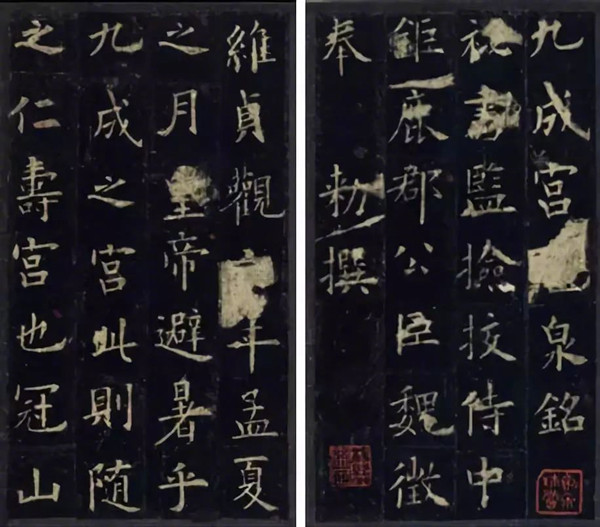 九成宮泉銘
祕書監撿挍侍中
鉅鹿郡公臣魏徵
奉 勑撰
維貞觀年孟夏
之月皇帝避暑乎
九成之宮此則随
之仁壽宮也冠山